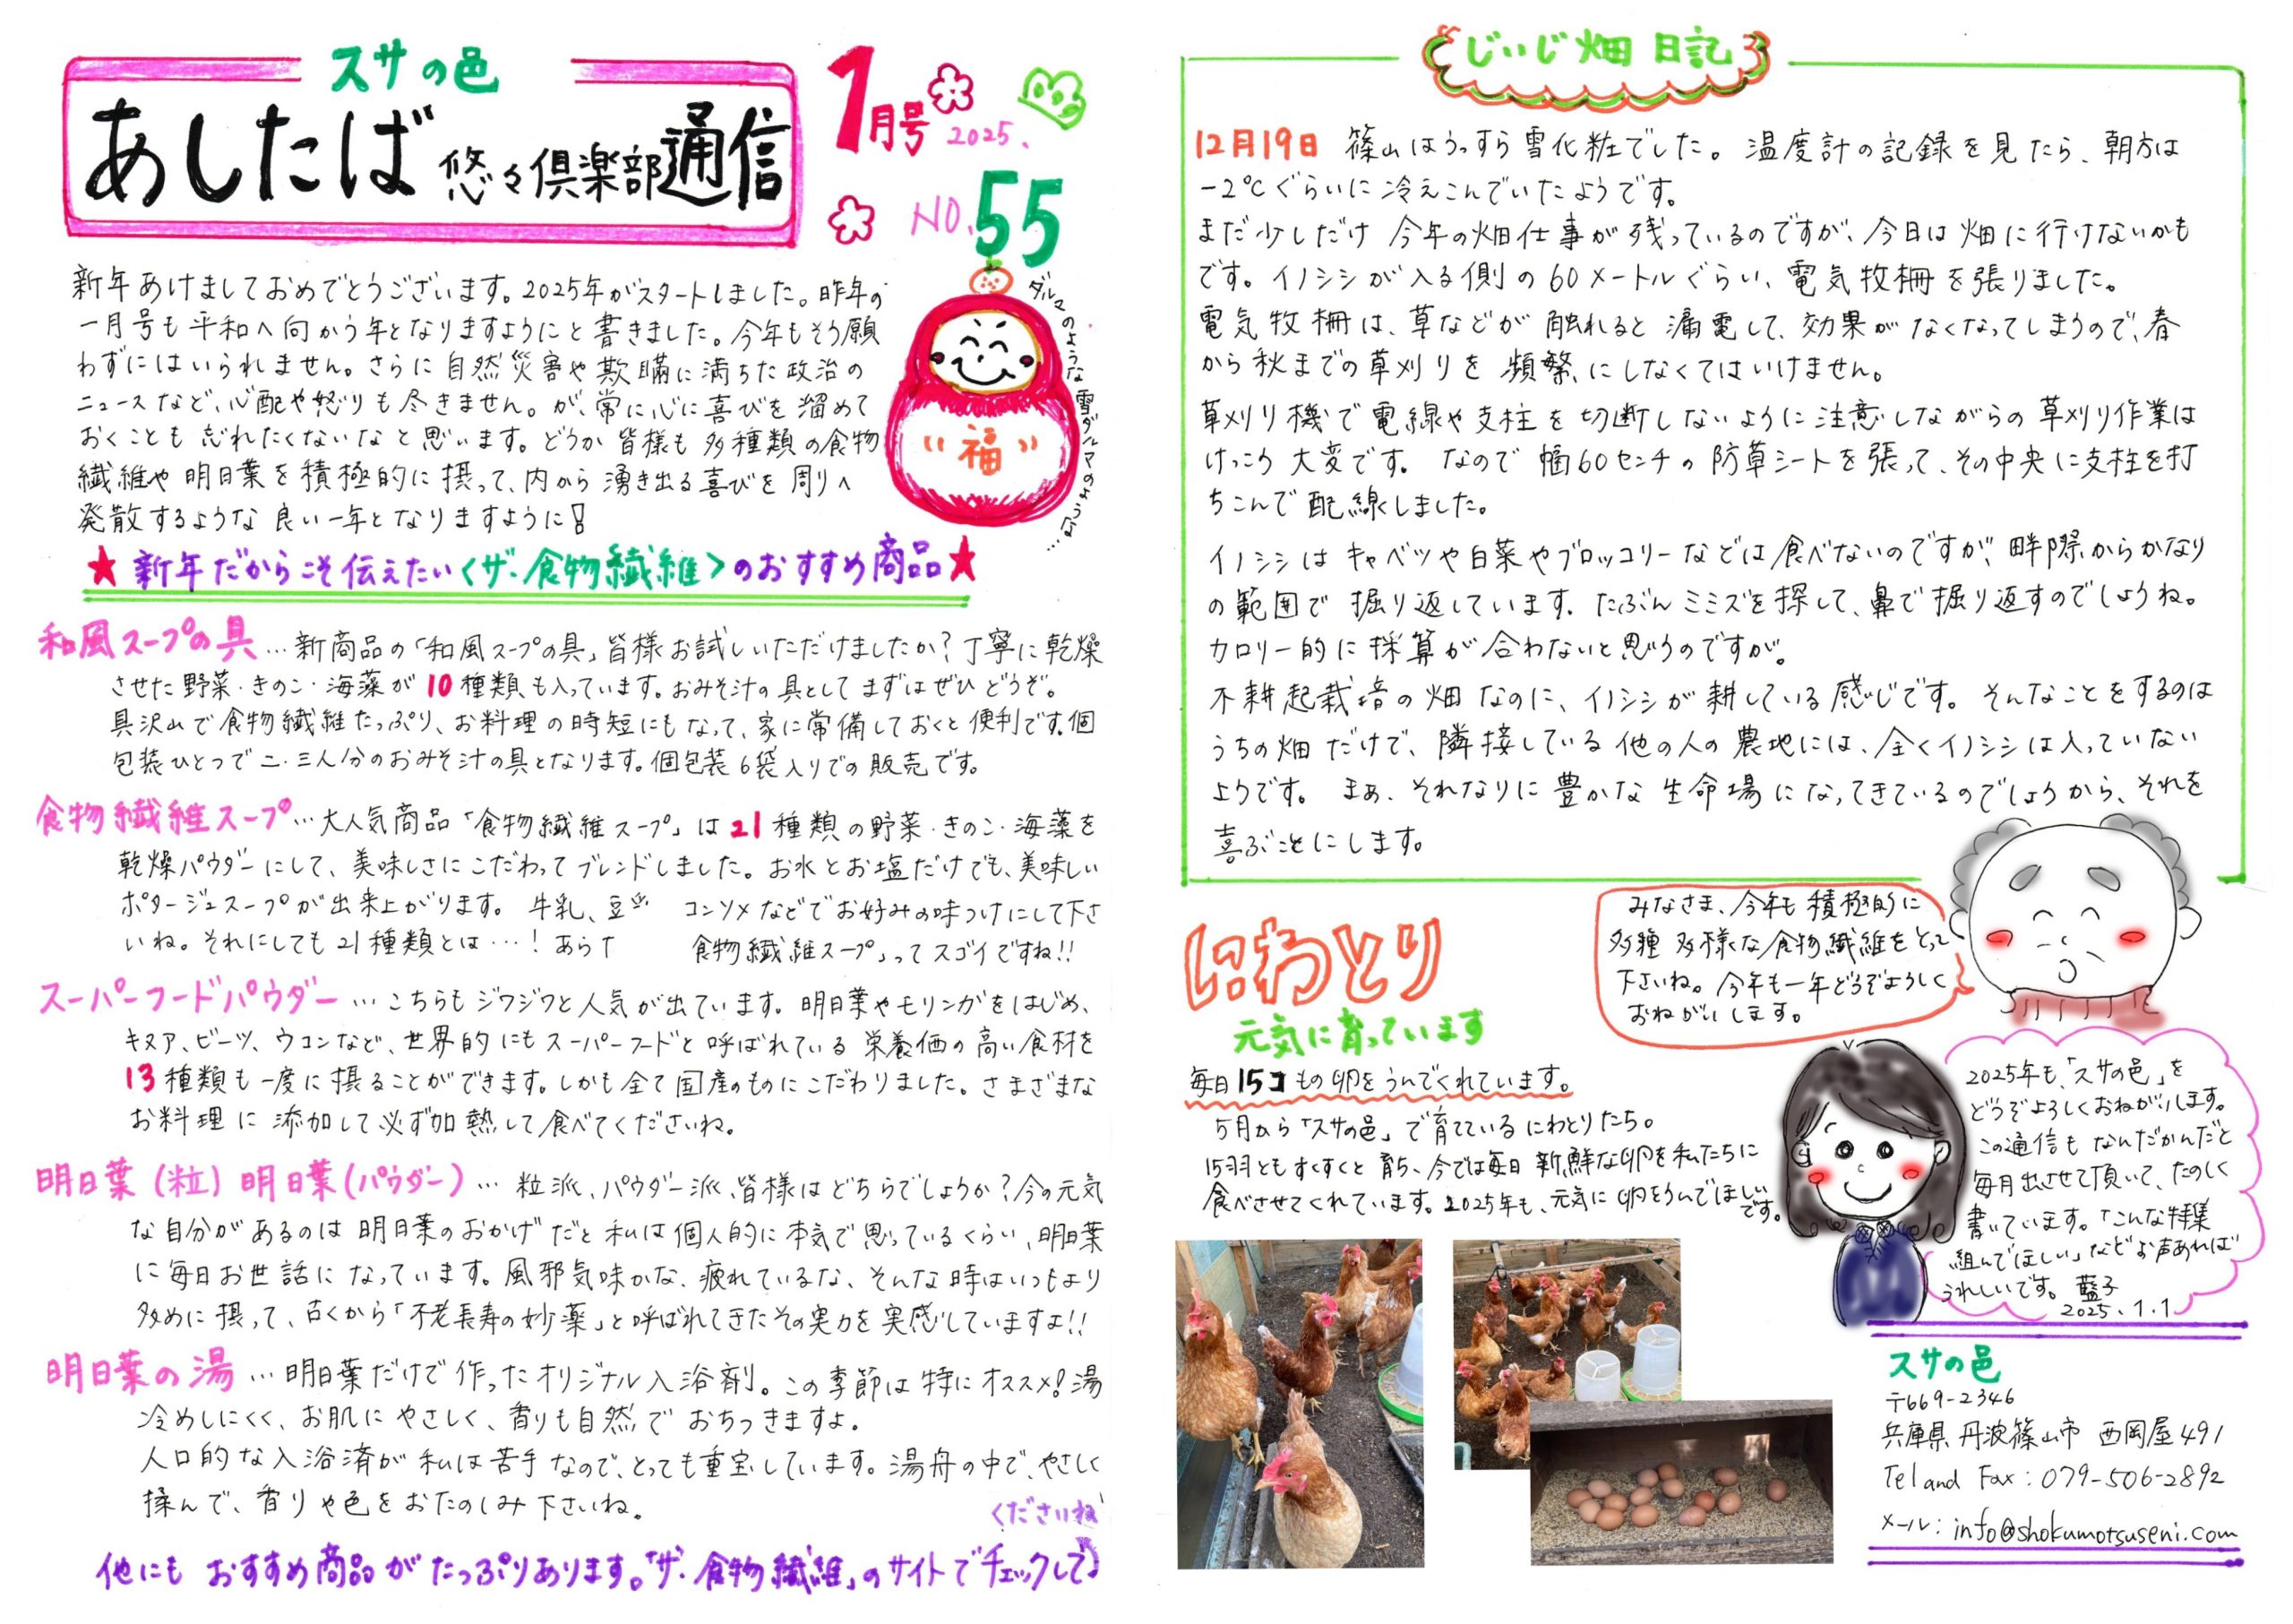 スサの邑
あしたば 悠々倶楽部 通信
1月号
2025.
NO.55
新年あけましておめでとうございます。2025年がスタートしました。昨年の
一月号も平和へ向かう年となりますようにと書きました。今年もそう願
わずにはいられません。さらに自然災害や欺瞞に満ちた政治の
ニュースなど、心配や怒りも尽きません。が、常に心に喜びを溜めて
おくことも忘れたくないなと思います。どうか皆様も多種類の食物
繊維や明日葉を積極的に摂って、内から湧き出る喜びを周りへ
発散するような良い一年となりますように!
福
ダルマのような雪ダルマのような…
★新年だからこそ伝えたい<ザ・食物繊維>のおすすめ商品★
和風スープの具…新商品の「和風スープの具」皆様お試しいただけましたか?丁寧に乾燥
させた野菜・きのこ・海藻が10種類も入っています。おみそ汁の具としてまずはぜひどうぞ。
具沢山で食物繊維たっぷり、お料理の時短にもなって、家に常備しておくと便利です。個
包装ひとつで二・三人分のおみそ汁の具となります。個包装6袋入りでの販売です。
食物繊維スープ…大人気商品「食物繊維スープ」は21種類の野菜・きのこ・海藻を
乾燥パウダーにして、美味しさにこだわってブレンドしました。お水とお塩だけでも、美味しい
ポタージュスープが出来上がります。牛乳、豆 コンソメなどでお好みの味つけにして下さ
いね。それにしても21種類とは…!あら 食物繊維スープ」ってスゴイですね!!
スーパーフードパウダー…こちらもジワジワと人気が出ています。明日葉やモリンガをはじめ、
キヌア、ビーツ、ウコンなど、世界的にもスーパーフードと呼ばれている栄養価の高い食材を
13種類も一度に摂ることができます。しかも全て国産のものにこだわりました。さまざまな
お料理に添加して必ず加熱して食べてくださいね。
明日葉(粒)明日葉(パウダー)…粒派、パウダー派、皆様はどちらでしょうか?今の元気
な自分があるのは明日葉のおかげだと私は個人的に本気で思っているくらい、明日葉
に毎日お世話になっています。風邪気味かな、疲れているな、そんな時はいつもより
多めに摂って、古くから「不老長寿の妙薬」と呼ばれてきたその実力を実感していますよ!!
明日葉の湯…明日葉だけで作ったオリジナル入浴剤。この季節は特にオススメ!湯
冷めしにくく、お肌にやさしく、香りも自然でおちつきますよ。
人口的な入浴済が私は苦手なので、とっても重宝しています。湯舟の中で、やさしく
揉んで、香りや色をおたのしみ下さいね。
他にもおすすめ商品がたっぷりあります。「ザ・食物繊維」のサイトでチェックして
くださいね
じいじ畑日記
12月19日 篠山はうっすら雪化粧でした。温度計の記録を見たら、朝方は
-2℃ぐらいに冷えこんでいたようです。
まだ少しだけ今年の畑仕事が残っているのですが、今日は畑に行けないかも
です。イノシシが入る側の60メートルぐらい、電気牧柵を張りました。
電気牧柵は、草などが触れると漏電して、効果がなくなってしまうので、春
から秋までの草刈りを頻繁にしなくてはいけません。
草刈り機で電線や支柱を切断しないように注意しながらの草刈り作業は
けっこう大変です。なので幅60センチの防草シートを張って、その中央に支柱を打
ちこんで配線しました。
イノシシはキャベツや白菜やブロッコリーなどは食べないのですが、畔際からかなり
の範囲で掘り返しています。たぶんミミズを探して、鼻で掘り返すのでしょうね。
カロリー的に採算が合わないと思うのですが。
不耕起栽培の畑なのに、イノシシが耕している感じです。そんなことをするのは
うちの畑だけで、隣接している他の人の農地には、全くイノシシは入っていない
ようです。まぁ、それなりに豊かな生命場になってきているのでしょうから、それを
喜ぶことにします。
みなさま、今年も積極的に
多種多様な食物繊維をとって
下さいね。今年も一年どうぞよろしく
おねがいします。
にわとり
元気に育っています
毎日15コもの卵をうんでくれています。
5月から「スサの邑」で育てているにわとりたち。
15羽ともすくすくと育ち、今では毎日新鮮な卵を私たちに
食べさせてくれています。2025年も、元気に卵をうんでほしい
です。
2025年も、「スサの邑」を
どうぞよろしくおねがいします。
この通信もなんだかんだと
毎月出させて頂いて、たのしく
書いています。「こんな特集
組んでほしい」などお声あれば
うれしいです。藍子
2025.1.1
スサの邑
〒669-2346
兵庫県丹波篠山市西岡屋491
Tel and Fax:079-506-2892
メール:info@shokumotsuseni.com